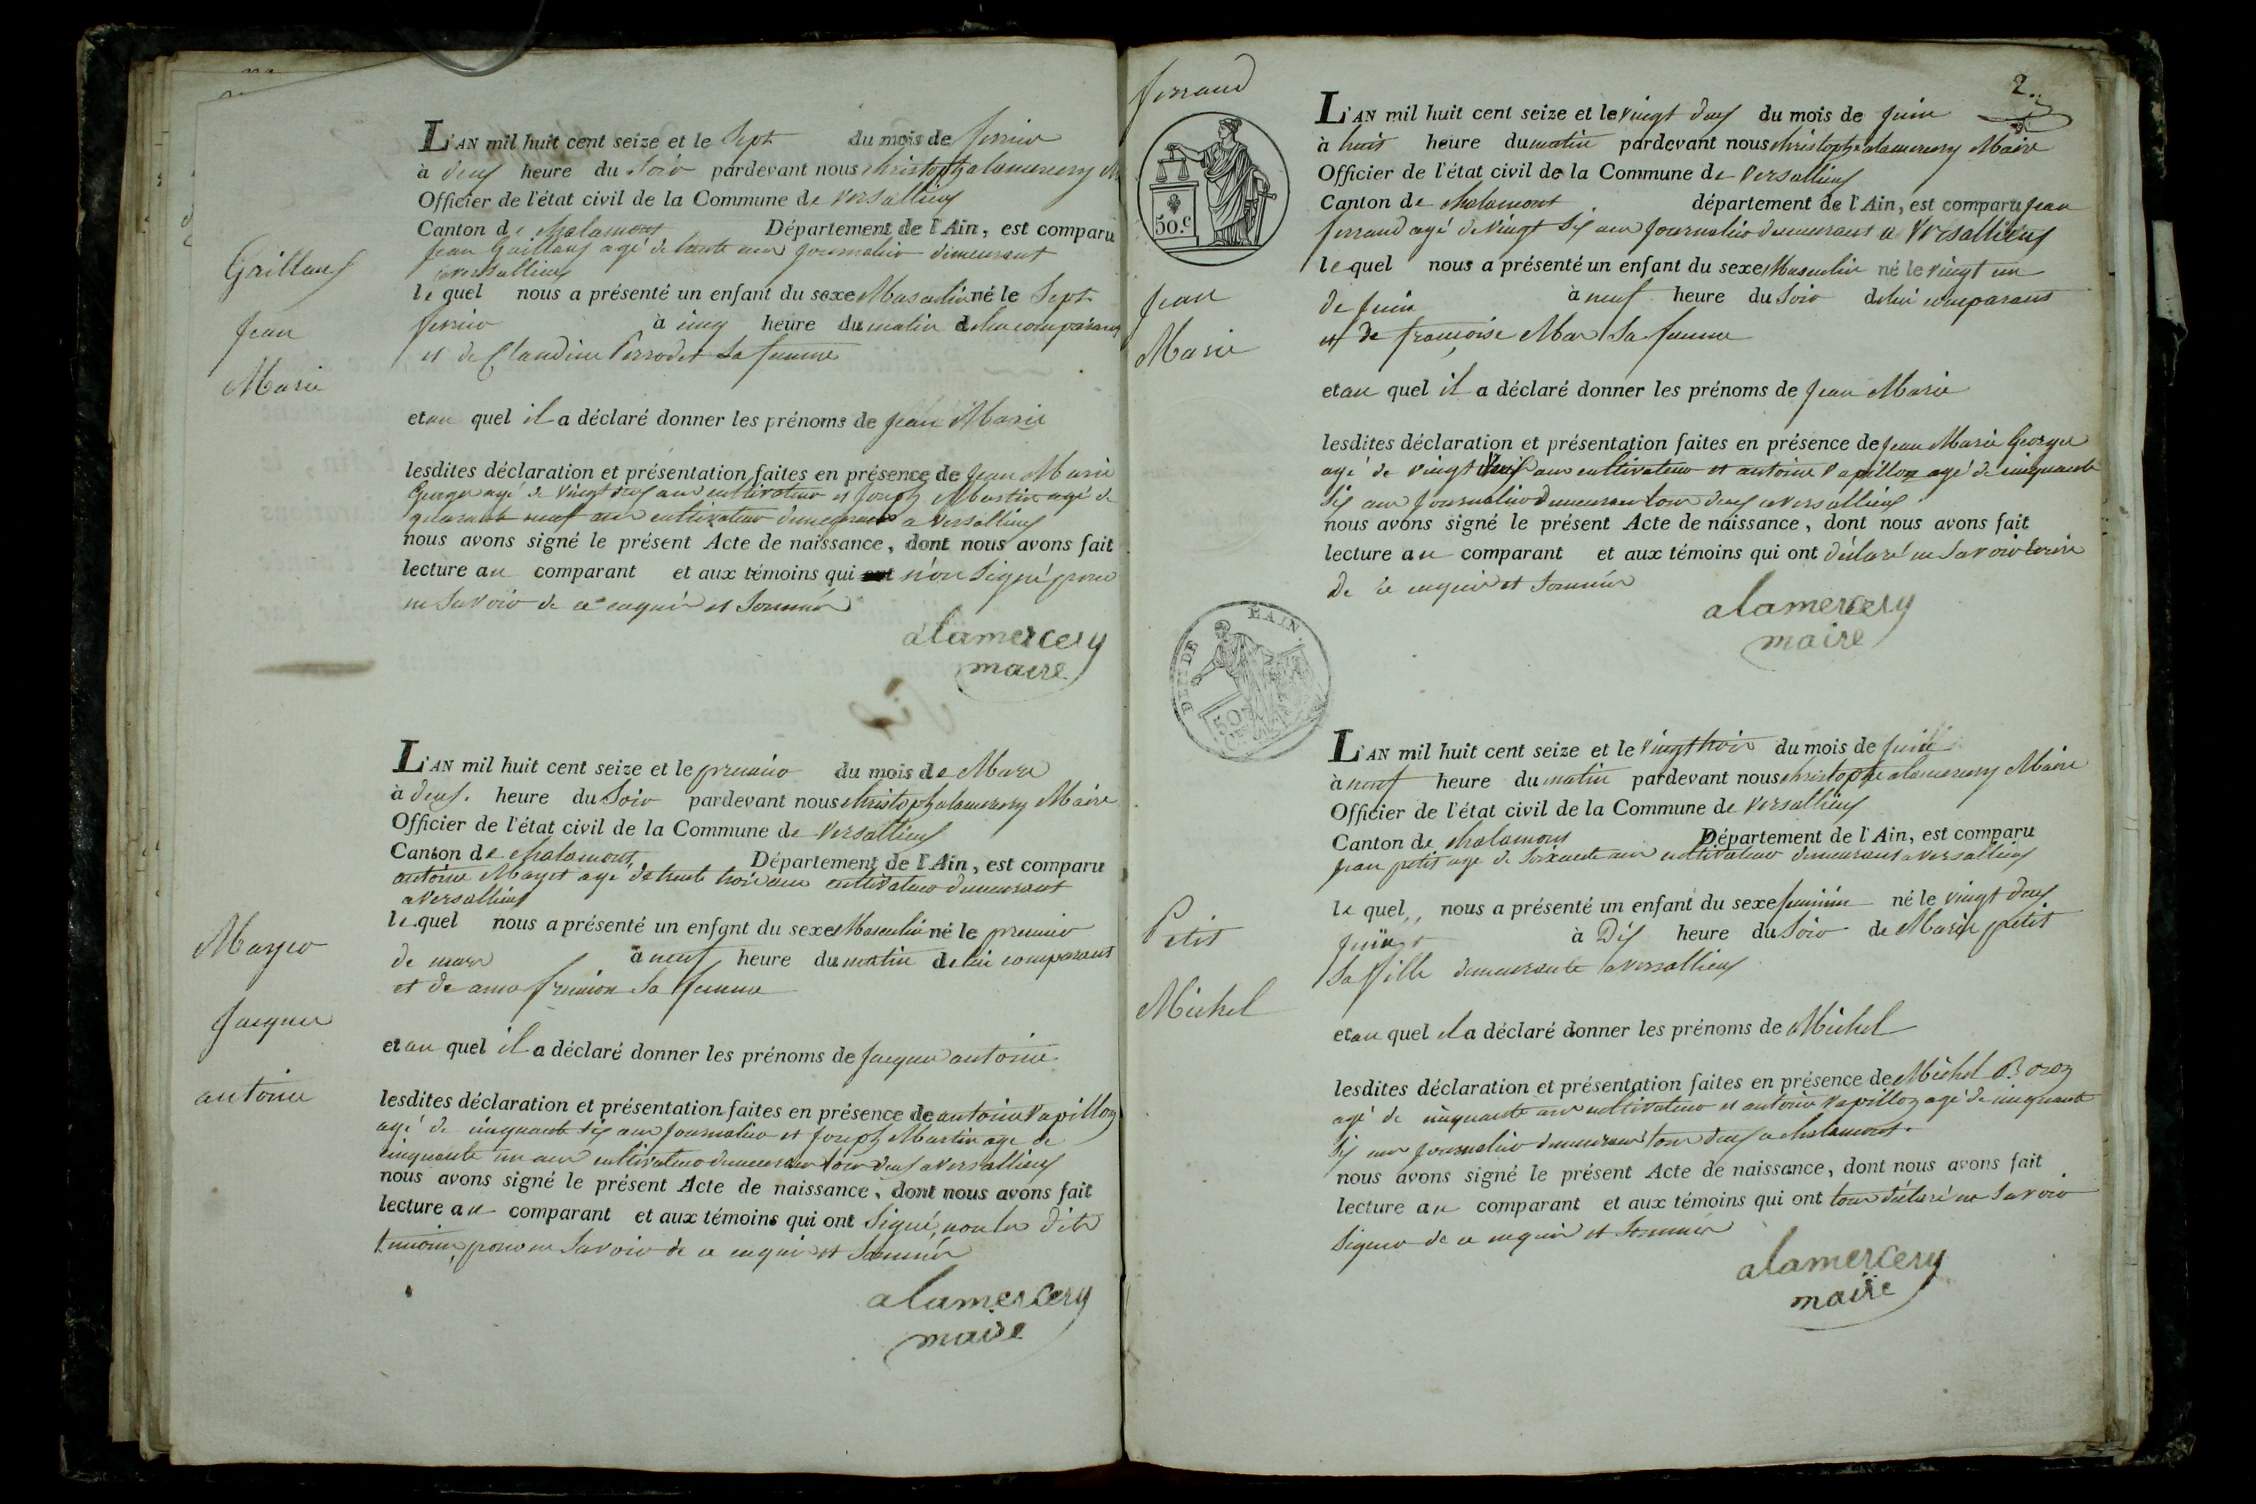 Gaillard
Jean
Marie
L'AN mil huit cent seize et le Sept du mois de fevrier
à deux heure du Soir pardevant nous christophe alamercery M
Officier de l'état civil de la Commune de Versallieux
Canton de chalamont Département de l'Ain, est comparu
jean Gaillard agé de trente ans journalier demeurant
a versallieux
le quel nous a présenté un enfant du sexe Masculin né le Sept
fevrier à cinq heure du matin de lui comparant
et de Claudine Perrodet Sa femme
et au quel il a déclaré donner les prénoms de jean Marie
lesdites déclaration et présentation faites en présence de jean Marie
George agé de vingt deux ans cultivateur et joseph Martin agé de
quarante neuf ans cultivateur demeurant a versallieux
nous avons signé le présent Acte de naissance, dont nous avons fait
lecture au comparant et aux témoins qui n'on Signé pour
ne Savoir de ce enquis et Sommés
alamercery
maire
Mayer
jacques
antoine
L'AN mil huit cent seize et le premier du mois de Mars
à deux heure du Soir pardevant nous christophe alamercery Maire
Officier de l'état civil de la Commune de Versallieux
Canton de chalamont Département de l'Ain, est comparu
antoine Mayet agé de trente trois ans cultivateur demeurant
a versallieux
le quel nous a présenté un enfant du sexe Masculin né le premier
de mars à neuf heure du matin de lui comparant
et de anne Sa femme
et au quel il a déclaré donner les prénoms de jacques antoine
lesdites déclaration et présentation faites en présence de antoine Papillon
agé de cinquante Six ans journalier et joseph Martin age de
cinquante un ans cultivateur demeurant tous deux a versallieux
nous avons signé le présent Acte de naissance, dont nous avons fait
lecture au comparant et aux témoins qui ont Signé, non les dits
temoins, pour ne Savoir de ce enquis et Sommés
alamercery
maire
2.
ferrand
50.c
jean
Marie
L'AN mil huit cent seize et le vingt deux du mois de juin
à huit heure du matin pardevant nous christophe alamercery Maire
Officier de l'état civil de la Commune de Versallieux
Canton de chalamont département de l'Ain, est comparu jean
ferrand agé de vingt Six ans journalier demeurant a Versallieux
le quel nous a présenté un enfant du sexe Masculin né le vingt un
de juin à neuf heure du Soir de lui comparant
et de françoise Mar Sa femme
et au quel il a déclaré donner les prénoms de jean Marie
lesdites déclaration et présentation faites en présence de jean Marie George
agé de vingt ans cultivateur et antoine Papillon agé de cinquante
Six ans journalier demeurant tous deux a versallieux
nous avons signé le présent Acte de naissance, dont nous avons fait
lecture au comparant et aux témoins qui ont déclaré ne Savoir Ecrire
de ce enquis et Sommés
alamercery
maire
DEP. DE L'AIN.
50
Petit
Michel
L'AN mil huit cent seize et le vingt trois du mois de juin
à neuf heure du matin pardevant nous christophe alamercery Maire
Officier de l'état civil de la Commune de Versallieux
Canton de chalamont Département de l'Ain, est comparu
jean petit age de Soixante ans cultivateur demeurant a versallieux
le quel nous a présenté un enfant du sexe feminin né le vingt deux
juin à Dix heure du Soir de Marie petit
Sa fille demeurante a versallieux
et au quel il a déclaré donner les prénoms de Michel
lesdites déclaration et présentation faites en présence de Michel Boron
agé de cinquante ans cultivateur et antoine Papillon agé de cinquante
Six ans journalier demeurant tous deux a chalamont.
nous avons signé le présent Acte de naissance, dont nous avons fait
lecture au comparant et aux témoins qui ont tous déclaré ne Savoir
Signer de ce enquis et Sommés
alamercery
maire